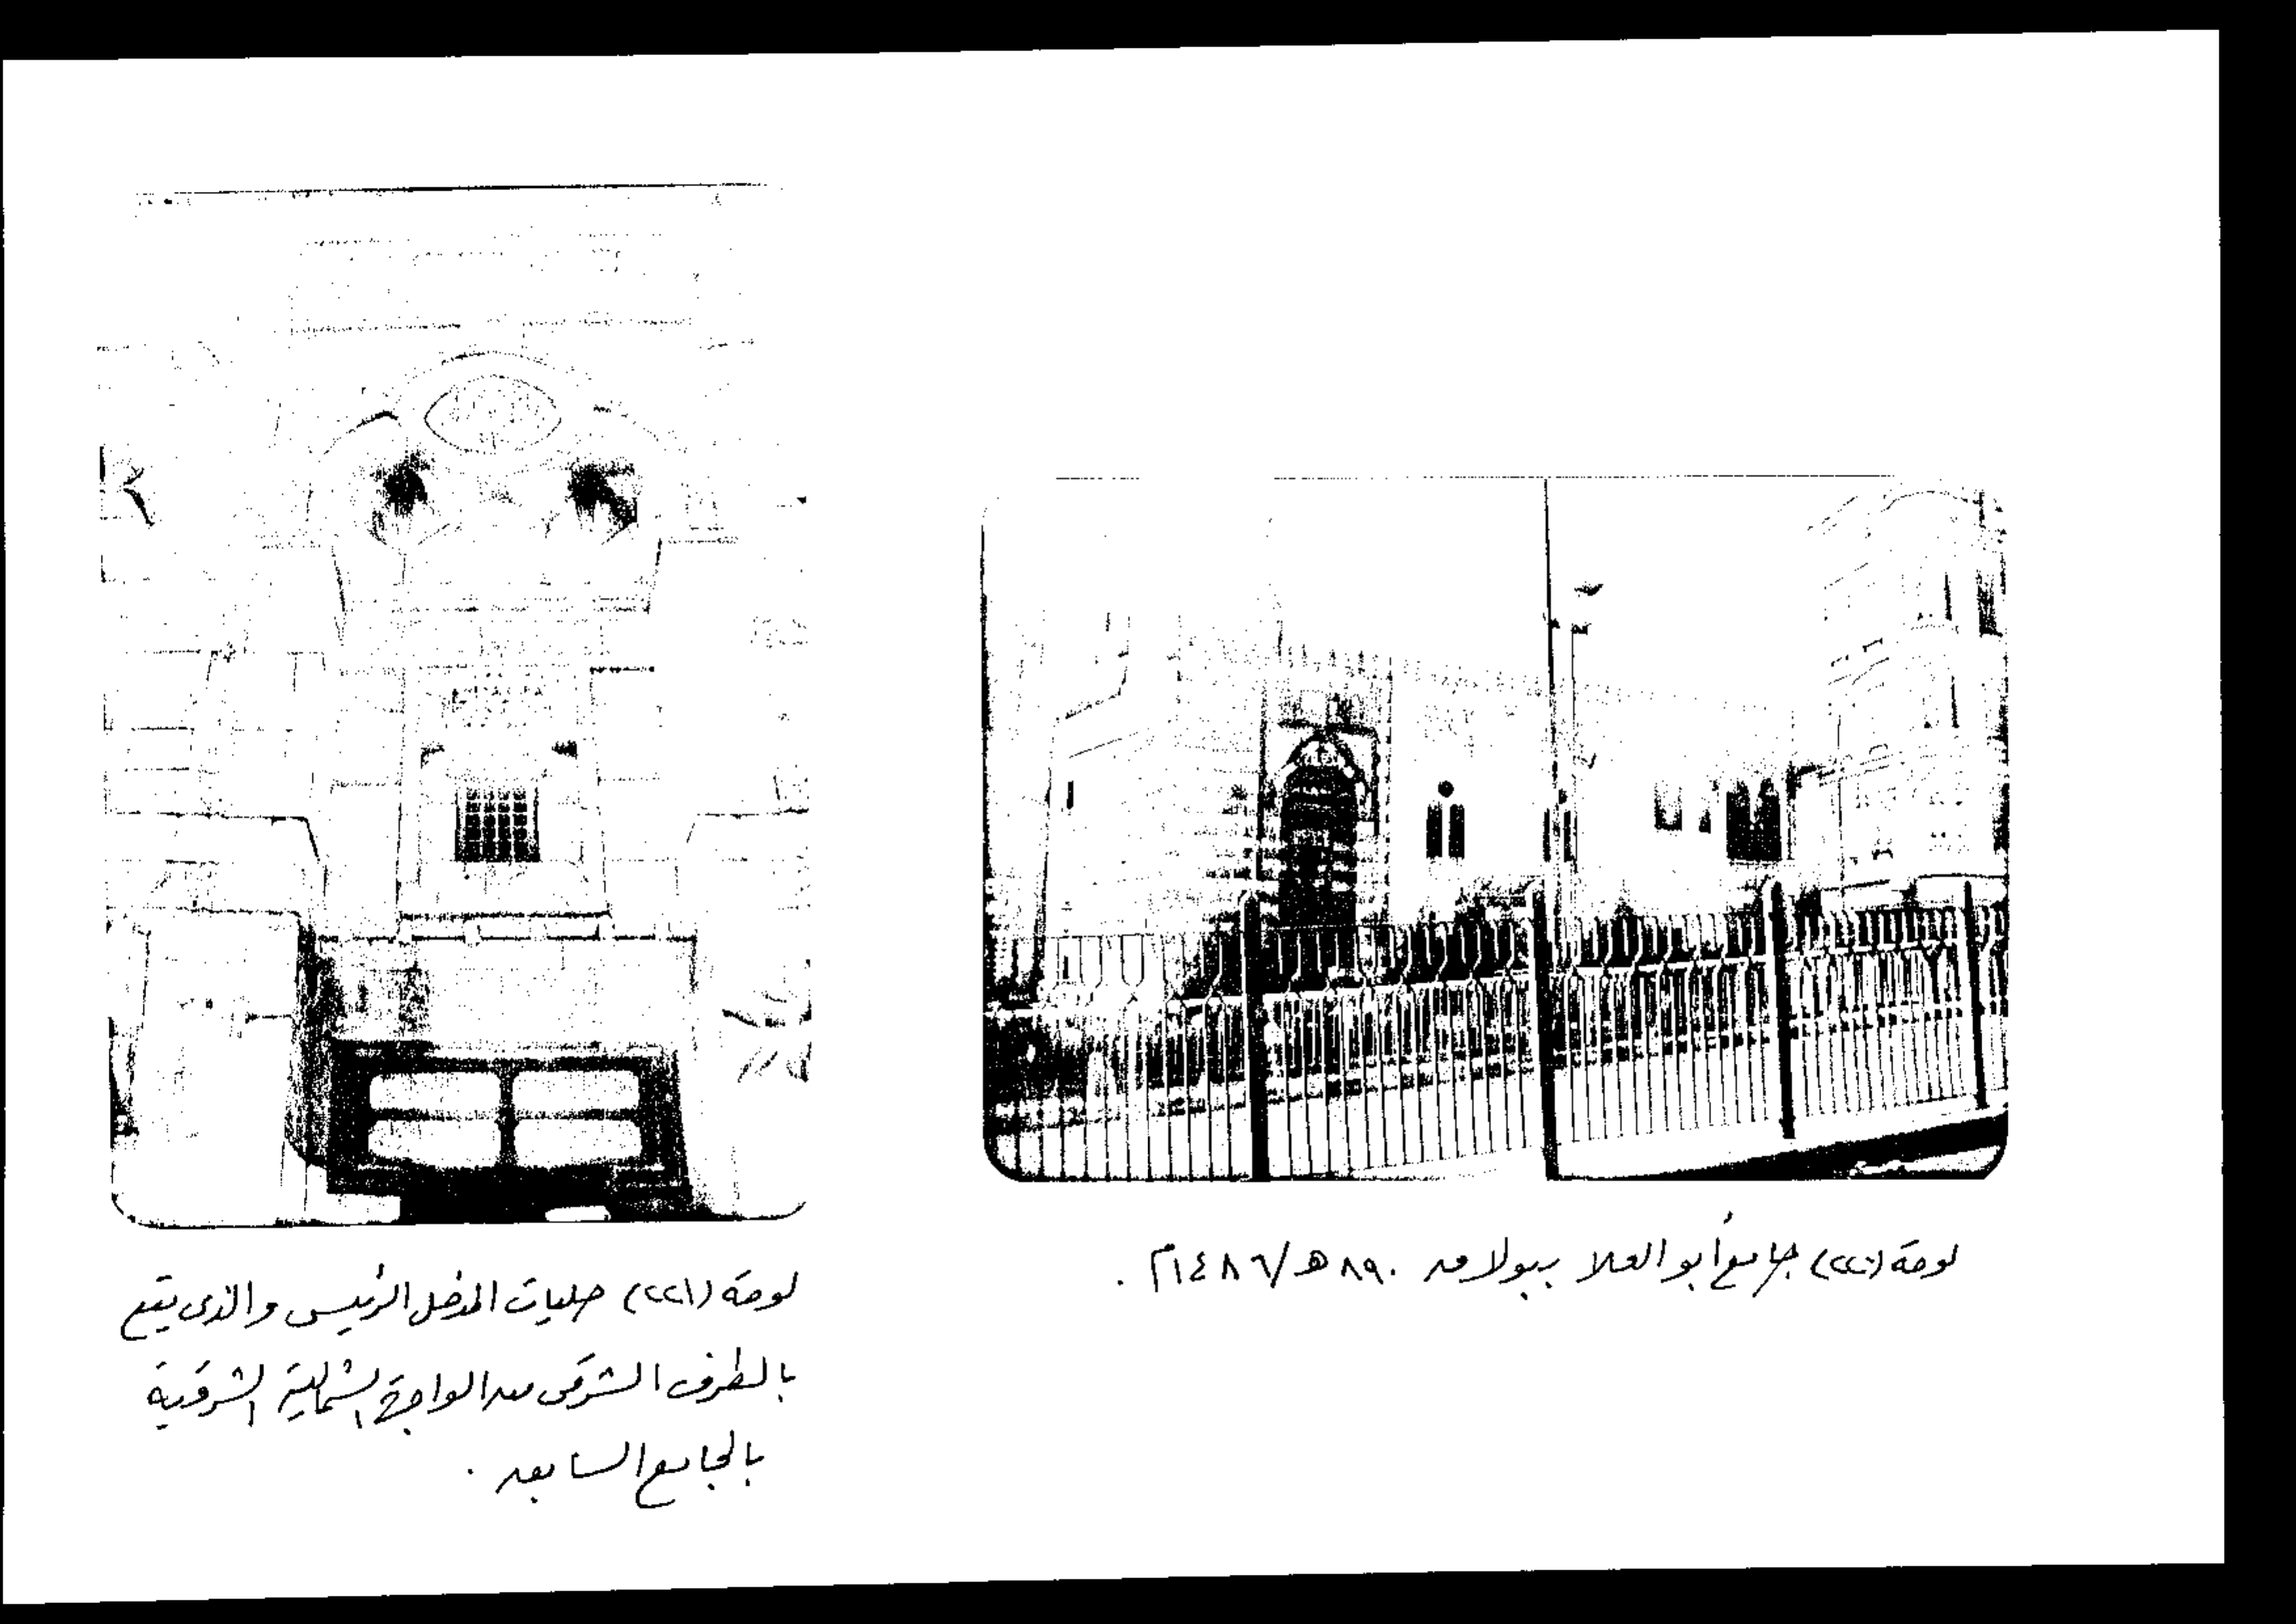 لوحة (٢٢٠) جامع أبو العلا ببولاق ٨٩٠هـ/١٤٨٦م .
لوحة (٢٢١) حليات المدخل الرئيسى والذى يقع
بالطرف الشرقى من الواجهة الشمالية الشرقية
بالجامع السابق .